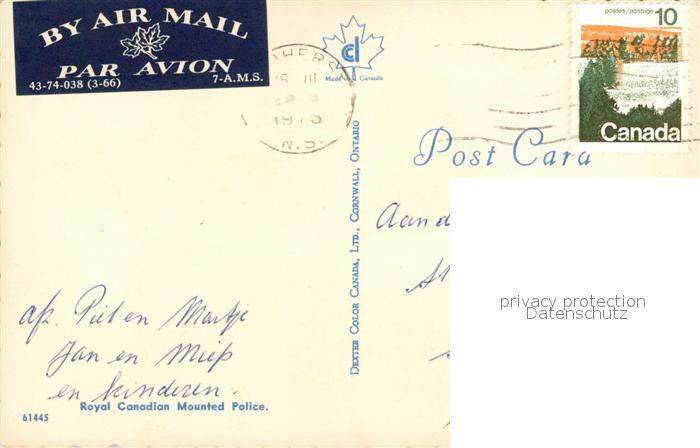 BY AIR MAIL
PAR AVION
43-74-038 (3-66) 7-A.M.S.
cl
Made in Canada
1973
N.S.
postes/postage 10
Canada
Post Card
DEXTER COLOR CANADA, LTD., CORNWALL, ONTARIO
Aan d
privacy protection
Datenschutz
afz. Piet en Martje
Jan en Miep
en kinderen.
Royal Canadian Mounted Police.
61445